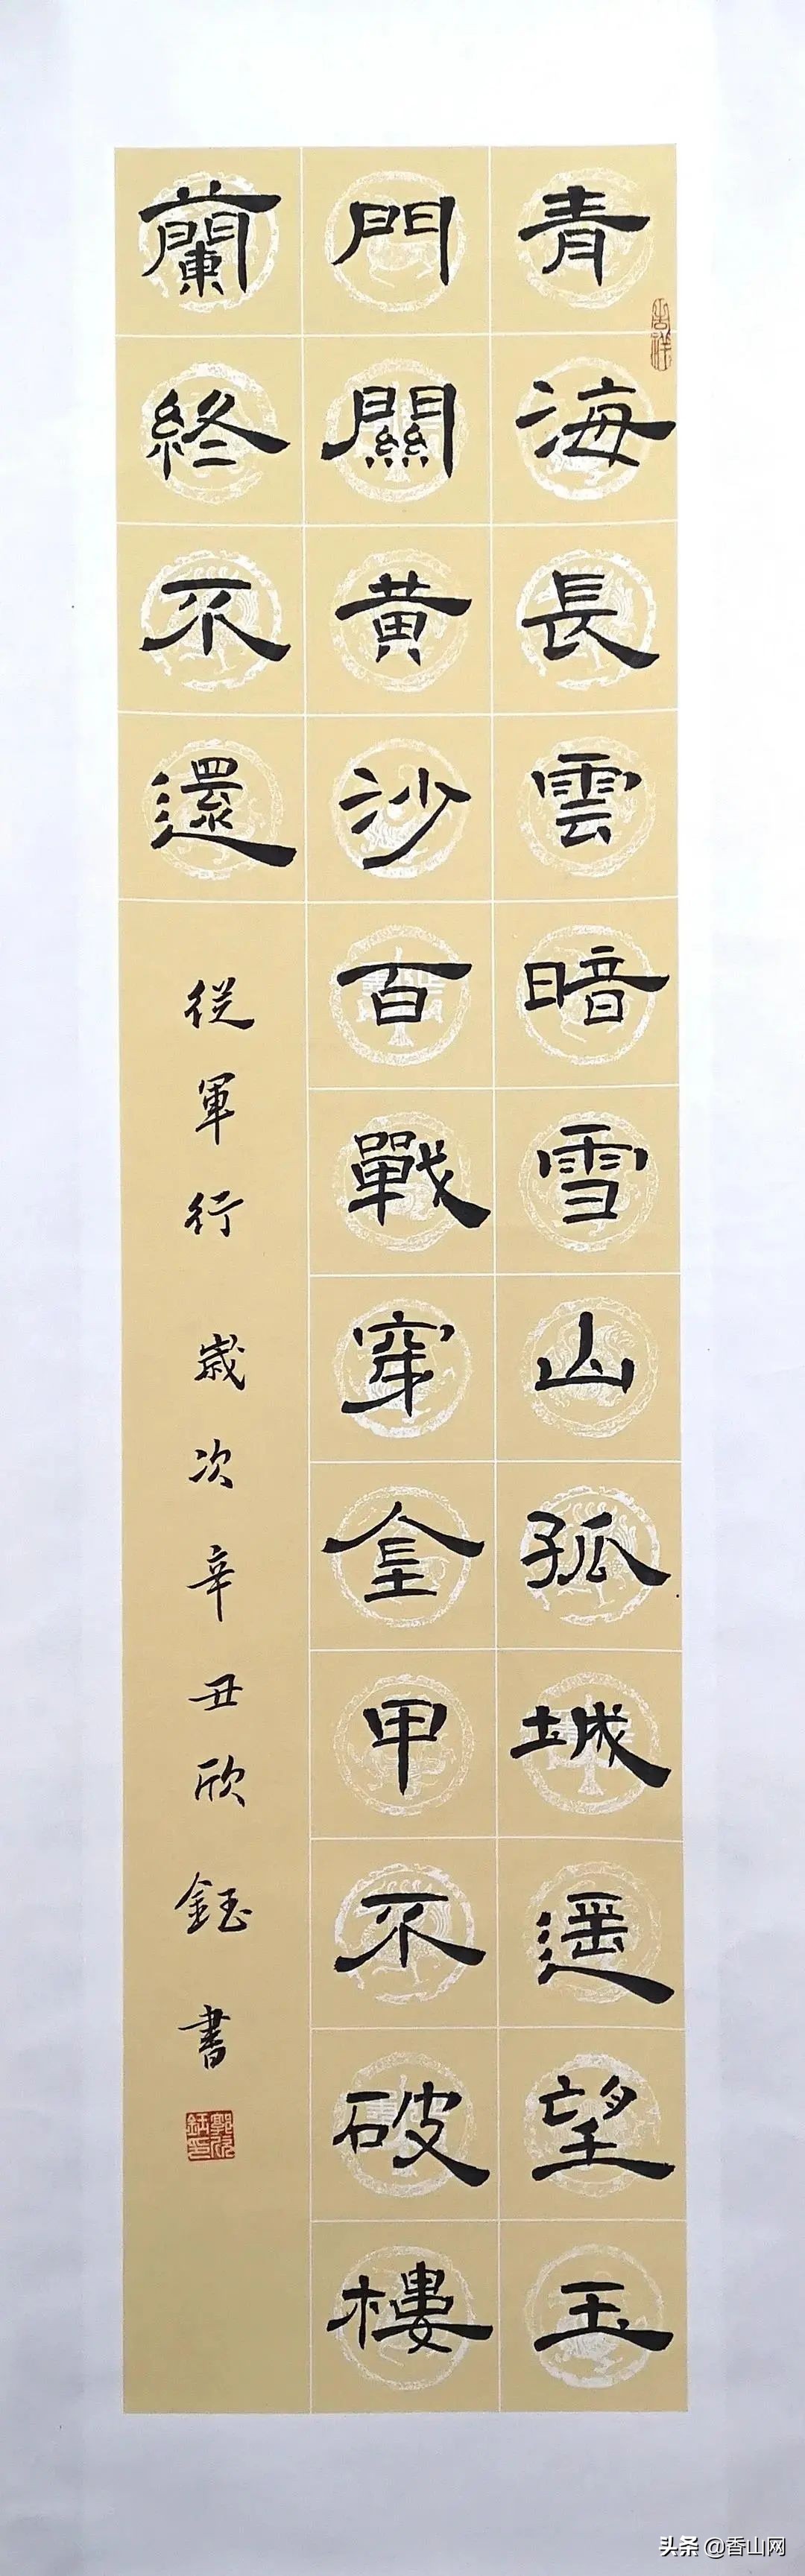 青海長雲暗雪山孤城遥望玉
門關黄沙百戰穿金甲不破樓
蘭終不還
從軍行 歲次辛丑欣鈺書
吉祥
头条 @香山网